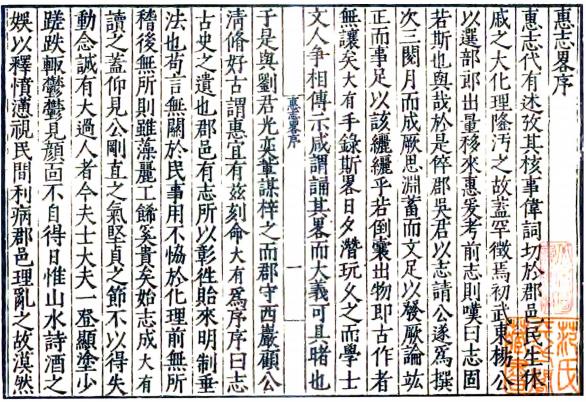 惠志畧序
惠志代有述孜其核事偉詞切於郡邑民生休
戚之大化理隆汚之故蓋罕徵焉初武東楊公
以選部郎出量移來惠爰考前志則嘆曰志固
若斯也與哉於是倅郡吳君以志請公遂爲撰
次三閱月而成厥思淵蓄而文足以發厥論竑
正而事足以該纚纚乎若倒囊出物即古作者
無讓矣大有手錄斯畧日夕潛玩乂之而學士
文人爭相傳示咸謂誦其畧而大義可具睹也
惠志畧序
一
于是與劉君光奕輩謀梓之而郡守西巖顧公
清脩好古謂惠宜有兹刻命大有爲序序曰志
古史之遺也郡邑有志所以彰徃貽來明制垂
法也苟言無關於民事用不恊於化理前無所
稽後無所則雖藻麗工餙奚貴矣始志成大有
讀之蓋仰見公剛直之氣堅貞之節不以得失
動念誠有大過人者今夫士大夫一登顯塗少
蹉跌輒鬱鬱見顔面不自得日惟山水詩酒之
娛以釋憤懣視民間利病郡邑理亂之故漠然